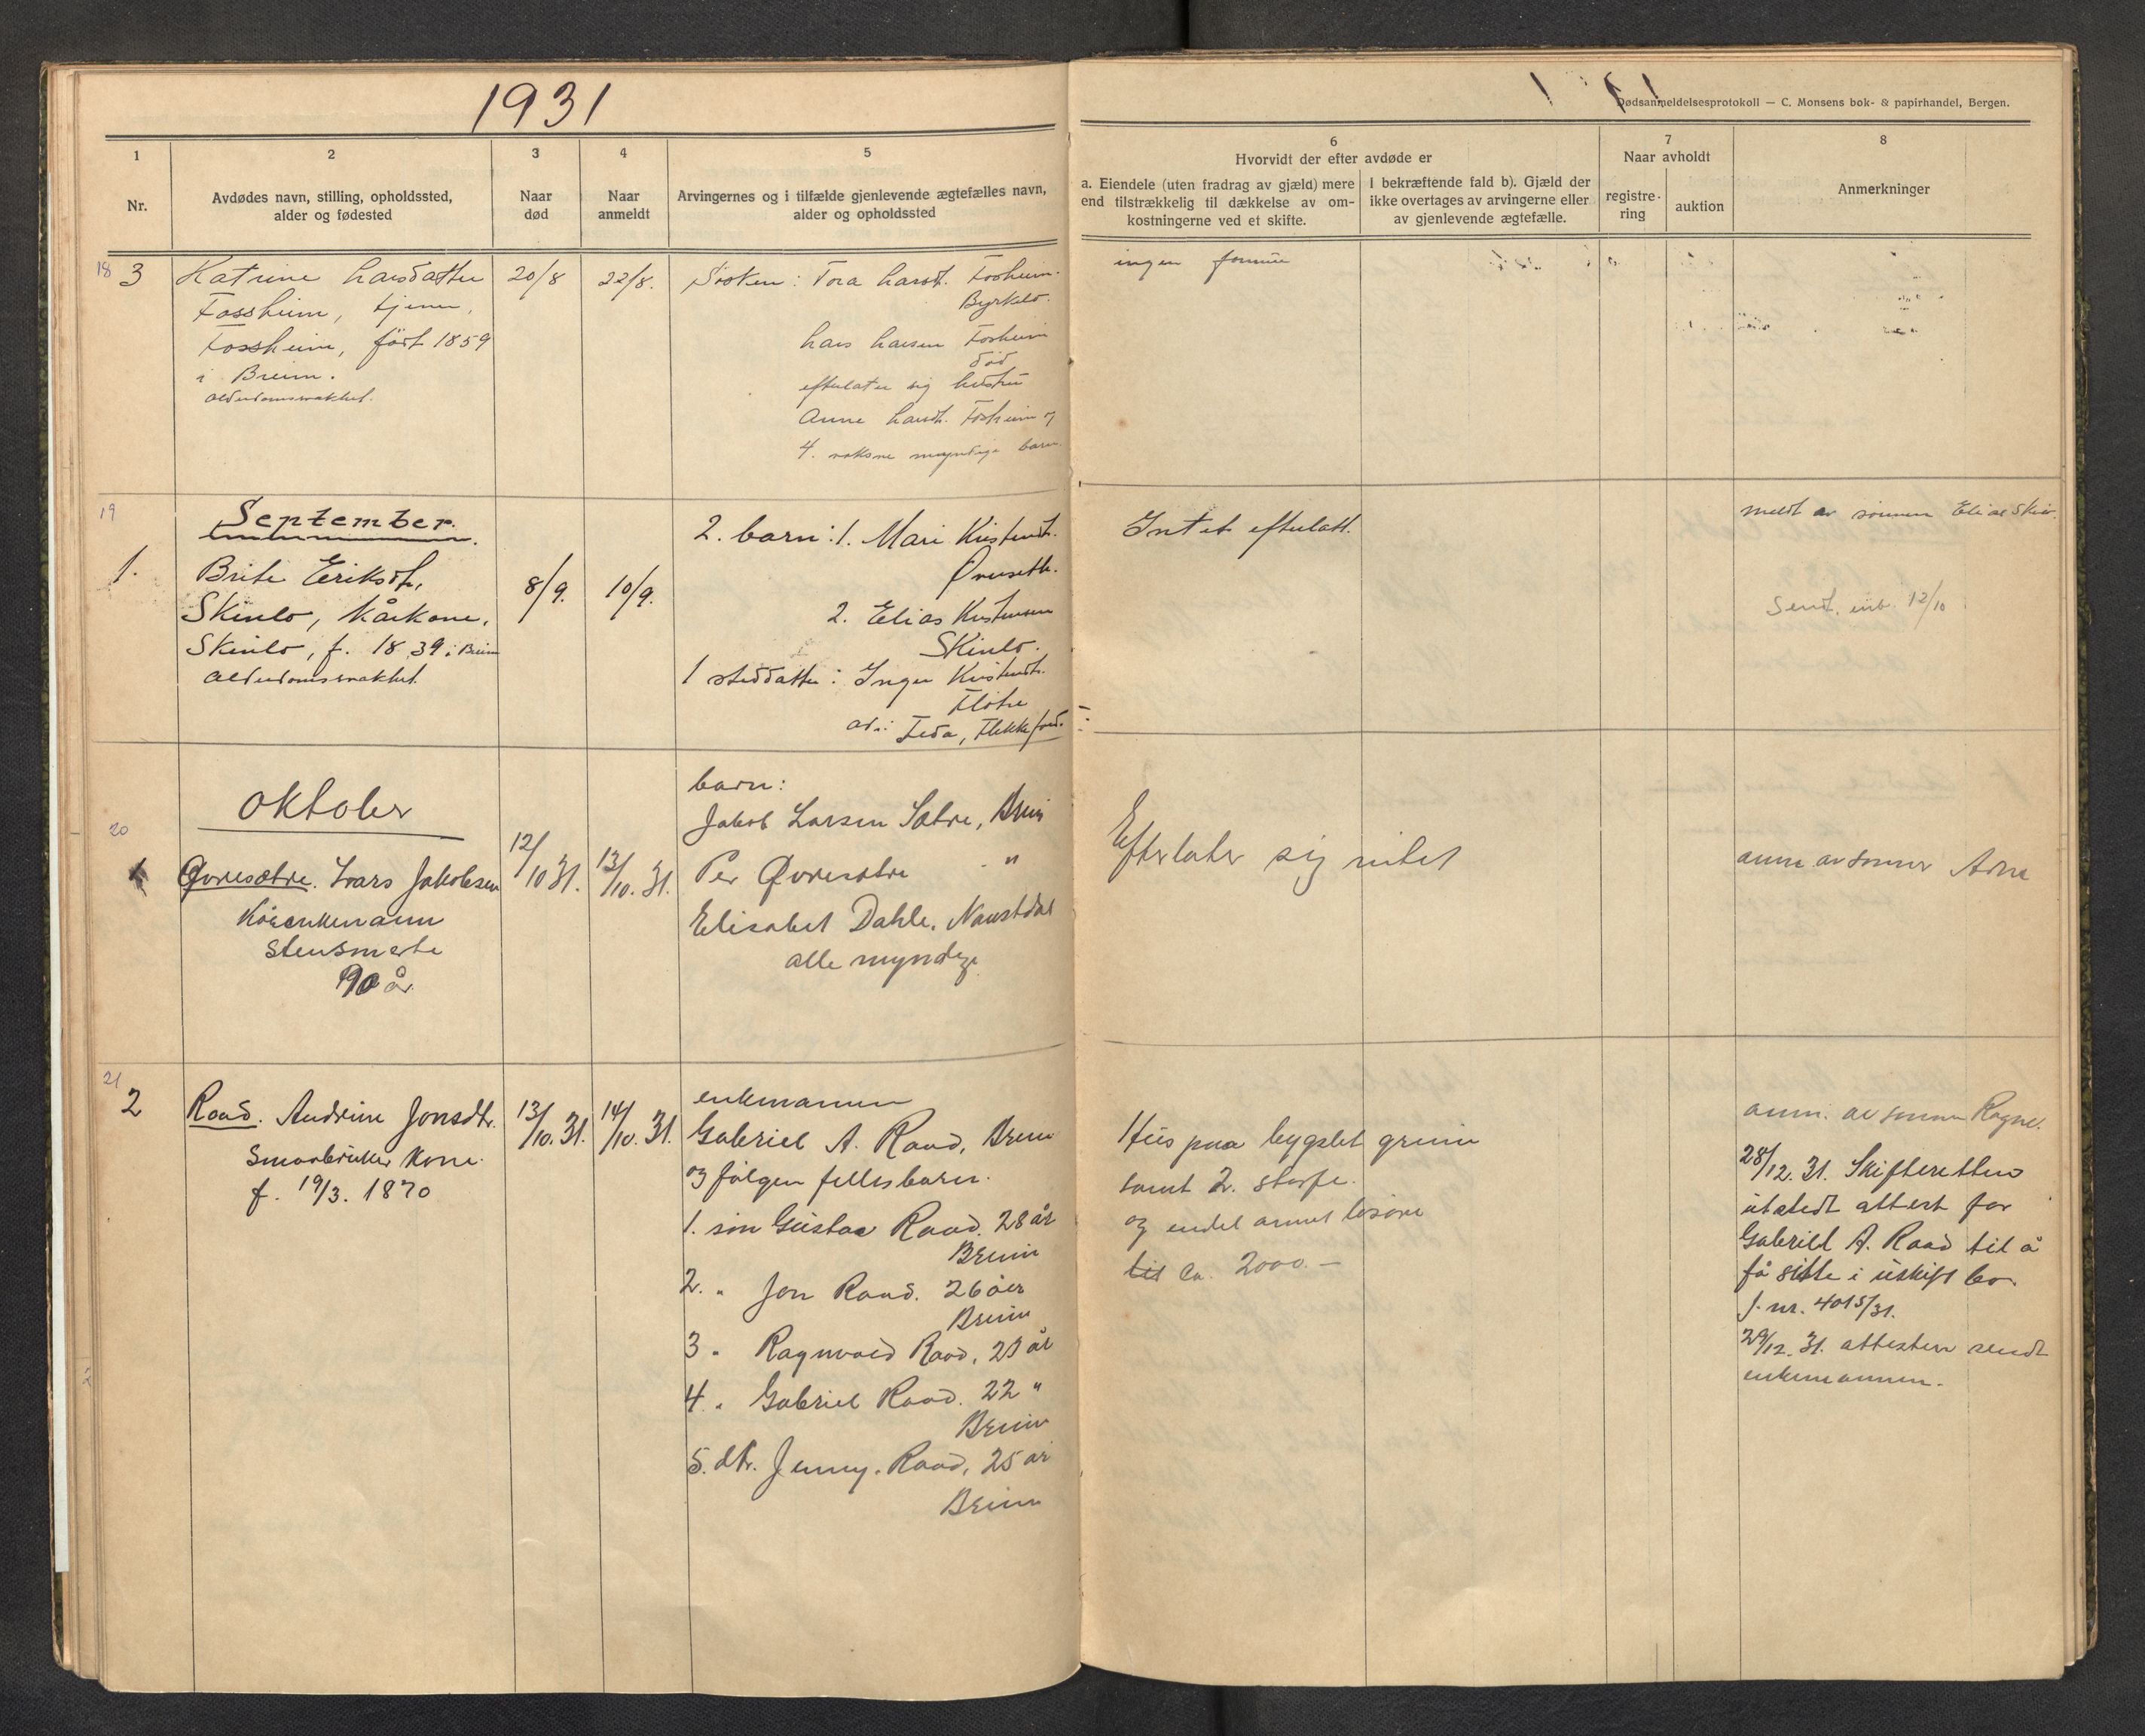 1931
Dødsanmeldelsesprotokoll — C. Monsens bok- & papirhandel, Bergen.
1
2
3
4
5
6
7
8
Nr.
Avdødes navn, stilling, opholdssted,
alder og fødested
Naar
død
Naar
anmeldt
Arvingernes og i tilfælde gjenlevende ægtefælles navn,
alder og opholdssted
Hvorvidt der efter avdøde er
a. Eiendele (uten fradrag av gjæld) mere
end tilstrækkelig til dækkelse av om-
kostningerne ved et skifte.
I bekræftende fald b). Gjæld der
ikke overtages av arvingerne eller
av gjenlevende ægtefælle.
Naar avholdt
registre-
ring
auktion
Anmerkninger
18 3
Katrine Larsdatter
Fossheim, tjener,
Fossheim, født 1859
i Breim.
Alderdomssvakhet.
20/8
22/8.
Søsken: Tora Larsdt. Fosheim
Byrkelo.
Lars Larsen Fosheim
død
efterlater sig hustru
Anne Larsdt. Fosheim og
4. voksne myndige barn.
ingen formue
19
September.
1.
Brite Eriksdt.
Skinlo, kårkone,
Skinlo, f. 1839 i Breim
Alderdomssvakhet.
8/9.
10/9.
2. barn: 1. Mari Kristendt.
2. Elias Kristensen
Skinlo.
1 steddatter: Inger Kristendt.
Flötre
adr: Feda, Flekkefjord.
Intet efterlatt.
meldt av sönnen Elias Skin.
Sendt. inb. 12/10
20
Oktober
1
Øvresætre. Lars Jakobsen
Kårenkemann
90 år
12/10 31.
13/10. 31.
barn:
Jakob Larsen Sætre, Breim
Per Øvresætre "
Elisabet Dahle, Naustdal
alle myndige
Efterlater sig intet
anm av sönnen
21
2
Raad. Andrine Jonsdtr.
Smaabruker kone.
f. 19/3. 1870
13/10. 31.
14/10. 31.
enkemannen
Gabriel A. Raad, Breim
og fölgen fellesbarn.
1. sön Gustav Raad. 28 år
Breim
2. " Jon Raad. 26 åer
Breim
3 " Ragnvald Raad, 23 år
4. " Gabriel Raad. 22 "
Breim
5. dtr. Jenny. Raad, 25 år
Breim
Hus paa bygslet grunn
samt 2. storfe.
og endel annet lösöre
til ca. 2000.—
anm. av sönnen Ragnv.
28/12. 31. Skifteretten
utstedt attest for
Gabriel A. Raad til å
få sitte i uskift bo.
J. nr. 4015/31.
29/12. 31. attesten sendt
enkemannen.